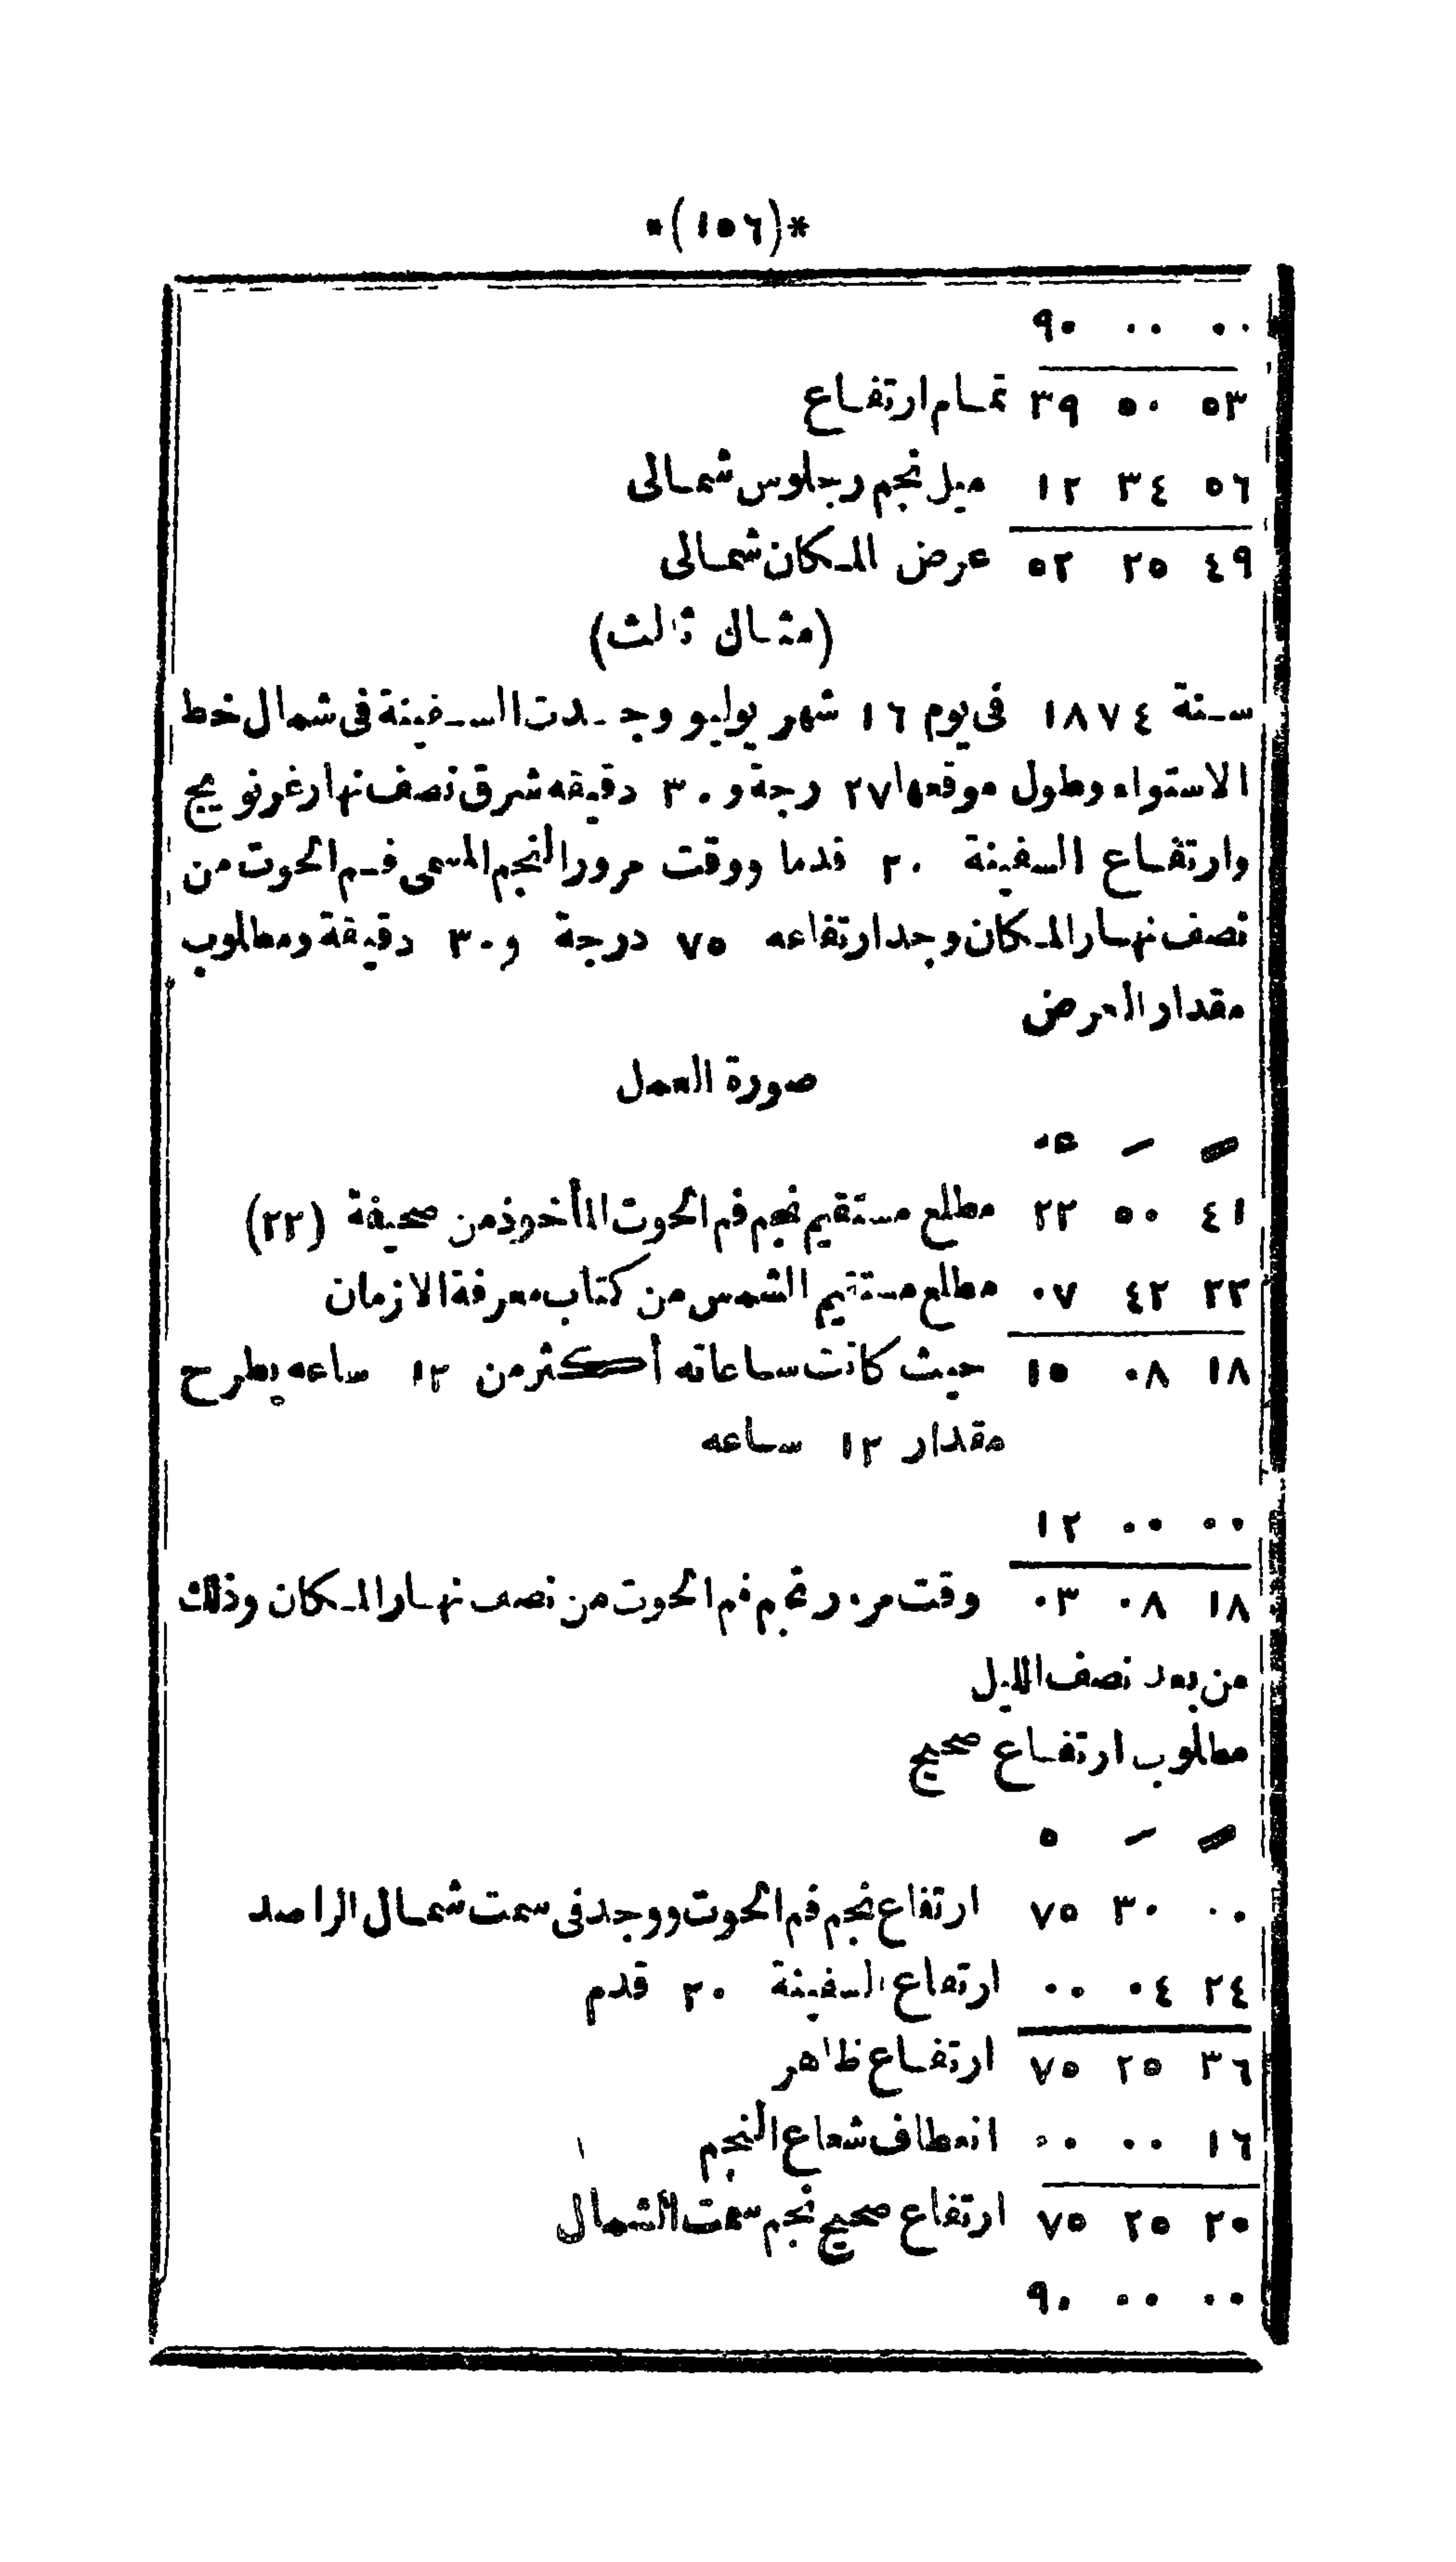 *(١٥٦)*
٠٠ ٠٠ ٩٠
٥٣ ٥٠ ٣٩ تمام ارتفاع
٥٦ ٣٤ ١٢ ميل نجم رجلوس شمالى
٤٩ ٢٥ ٥٢ عرض المكان شمالى
(مثال ثالث)
سنة ١٨٧٤ فى يوم ١٦ شهر يوليو وجدت السفينة فى شمال خط
الاستواء وطول موقعها ٢٧ رجة و ٣٠ دقيقه شرق نصف نهار غرنويج
وارتفاع السفينة ٢٠ قدما ووقت مرور النجم المسمى فم الحوت من
نصف نهار المكان وجد ارتفاعه ٧٥ درجة و ٣٠ دقيقة ومطلوب
مقدار العرض
صورة العمل
عه
٤١ ٥٠ ٢٢ مطلع مستقيم نجم فم الحوت المأخوذ من صحيفة (٢٢)
٢٣ ٤٢ ٠٧ مطلع مستقيم الشمس من كتاب معرفة الازمان
١٨ ٠٨ ١٥ حيث كانت ساعاته أكثر من ١٢ ساعه يطرح
مقدار ١٢ ساعه
٠٠ ٠٠ ١٢
١٨ ٠٨ ٠٣ وقت مرور نجم فم الحوت من نصف نهار المكان وذلك
من بعد نصف الليل
مطلوب ارتفاع صحيح
°
٠٠ ٣٠ ٧٥ ارتفاع نجم فم الحوت ووجد فى سمت شمال الراصد
٢٤ ٠٤ ٠٠ ارتفاع السفينة ٢٠ قدم
٣٦ ٢٥ ٧٥ ارتفاع ظاهر
١٦ ٠٠ ٠٠ انعطاف شعاع النجم
٢٠ ٢٥ ٧٥ ارتفاع صحيح نجم سمت الشمال
٠٠ ٠٠ ٩٠